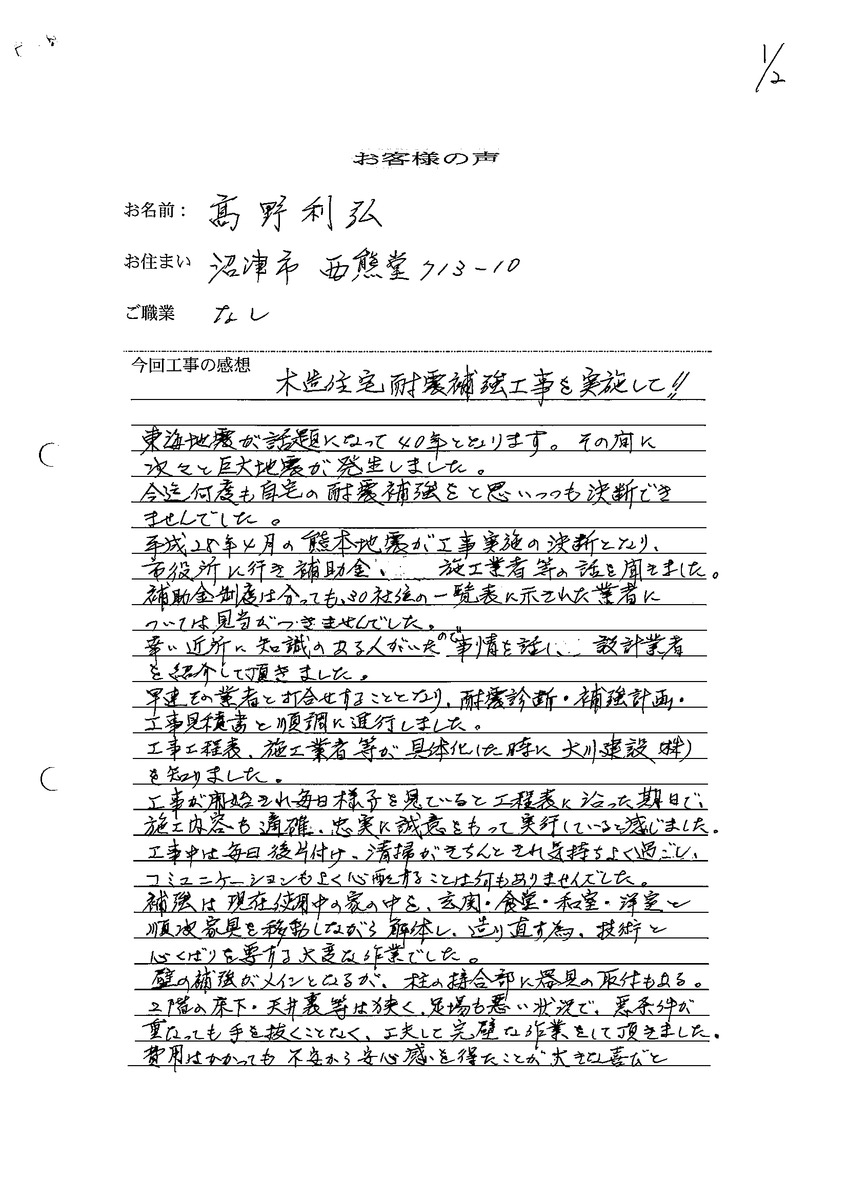 1/2
お客様の声
お名前： 髙野利弘
お住まい 沼津市 西熊堂713-10
ご職業 なし
今回工事の感想
木造住宅耐震補強工事を実施して!!
東海地震が話題になって40年となります。その間に
次々と巨大地震が発生しました。
今迄何度も自宅の耐震補強をと思いつつも決断でき
ませんでした。
平成28年4月の熊本地震が工事実施の決断となり、
市役所に行き補助金、 施工業者等の話を聞きました。
補助金制度は分っても、30社強の一覧表に示された業者に
ついては見当がつきませんでした。
幸い近所に知識のある人がいたので事情を話し 設計業者
を紹介して頂きました。
早速その業者と打合せすることとなり、耐震診断・補強計画・
工事見積書と順調に進行しました。
工事工程表、施工業者等が具体化した時に 大川建設(株)
を知りました。
工事が開始され毎日様子を見ていると工程表に沿った期日で、
施工内容も適確、忠実に誠意をもって実行していると感じました。
工事中は毎日後片付け、清掃がきちんとされ気持ちよく過ごし、
コミュニケーションもよく心配することは何もありませんでした。
補強は現在使用中の家の中を、玄関・食堂・和室・洋室と
順次家具を移動しながら解体し、造り直す為、技術と
心くばりを要する大変な作業でした。
壁の補強がメインとなるが、柱の接合部に器具の取付もある。
2階の床下・天井裏等は狭く、足場も悪い状況で、悪条件が
重なっても手を抜くことなく、工夫して完璧な作業をして頂きました。
費用はかかっても 不安から安心感を得たことが大きな喜びと